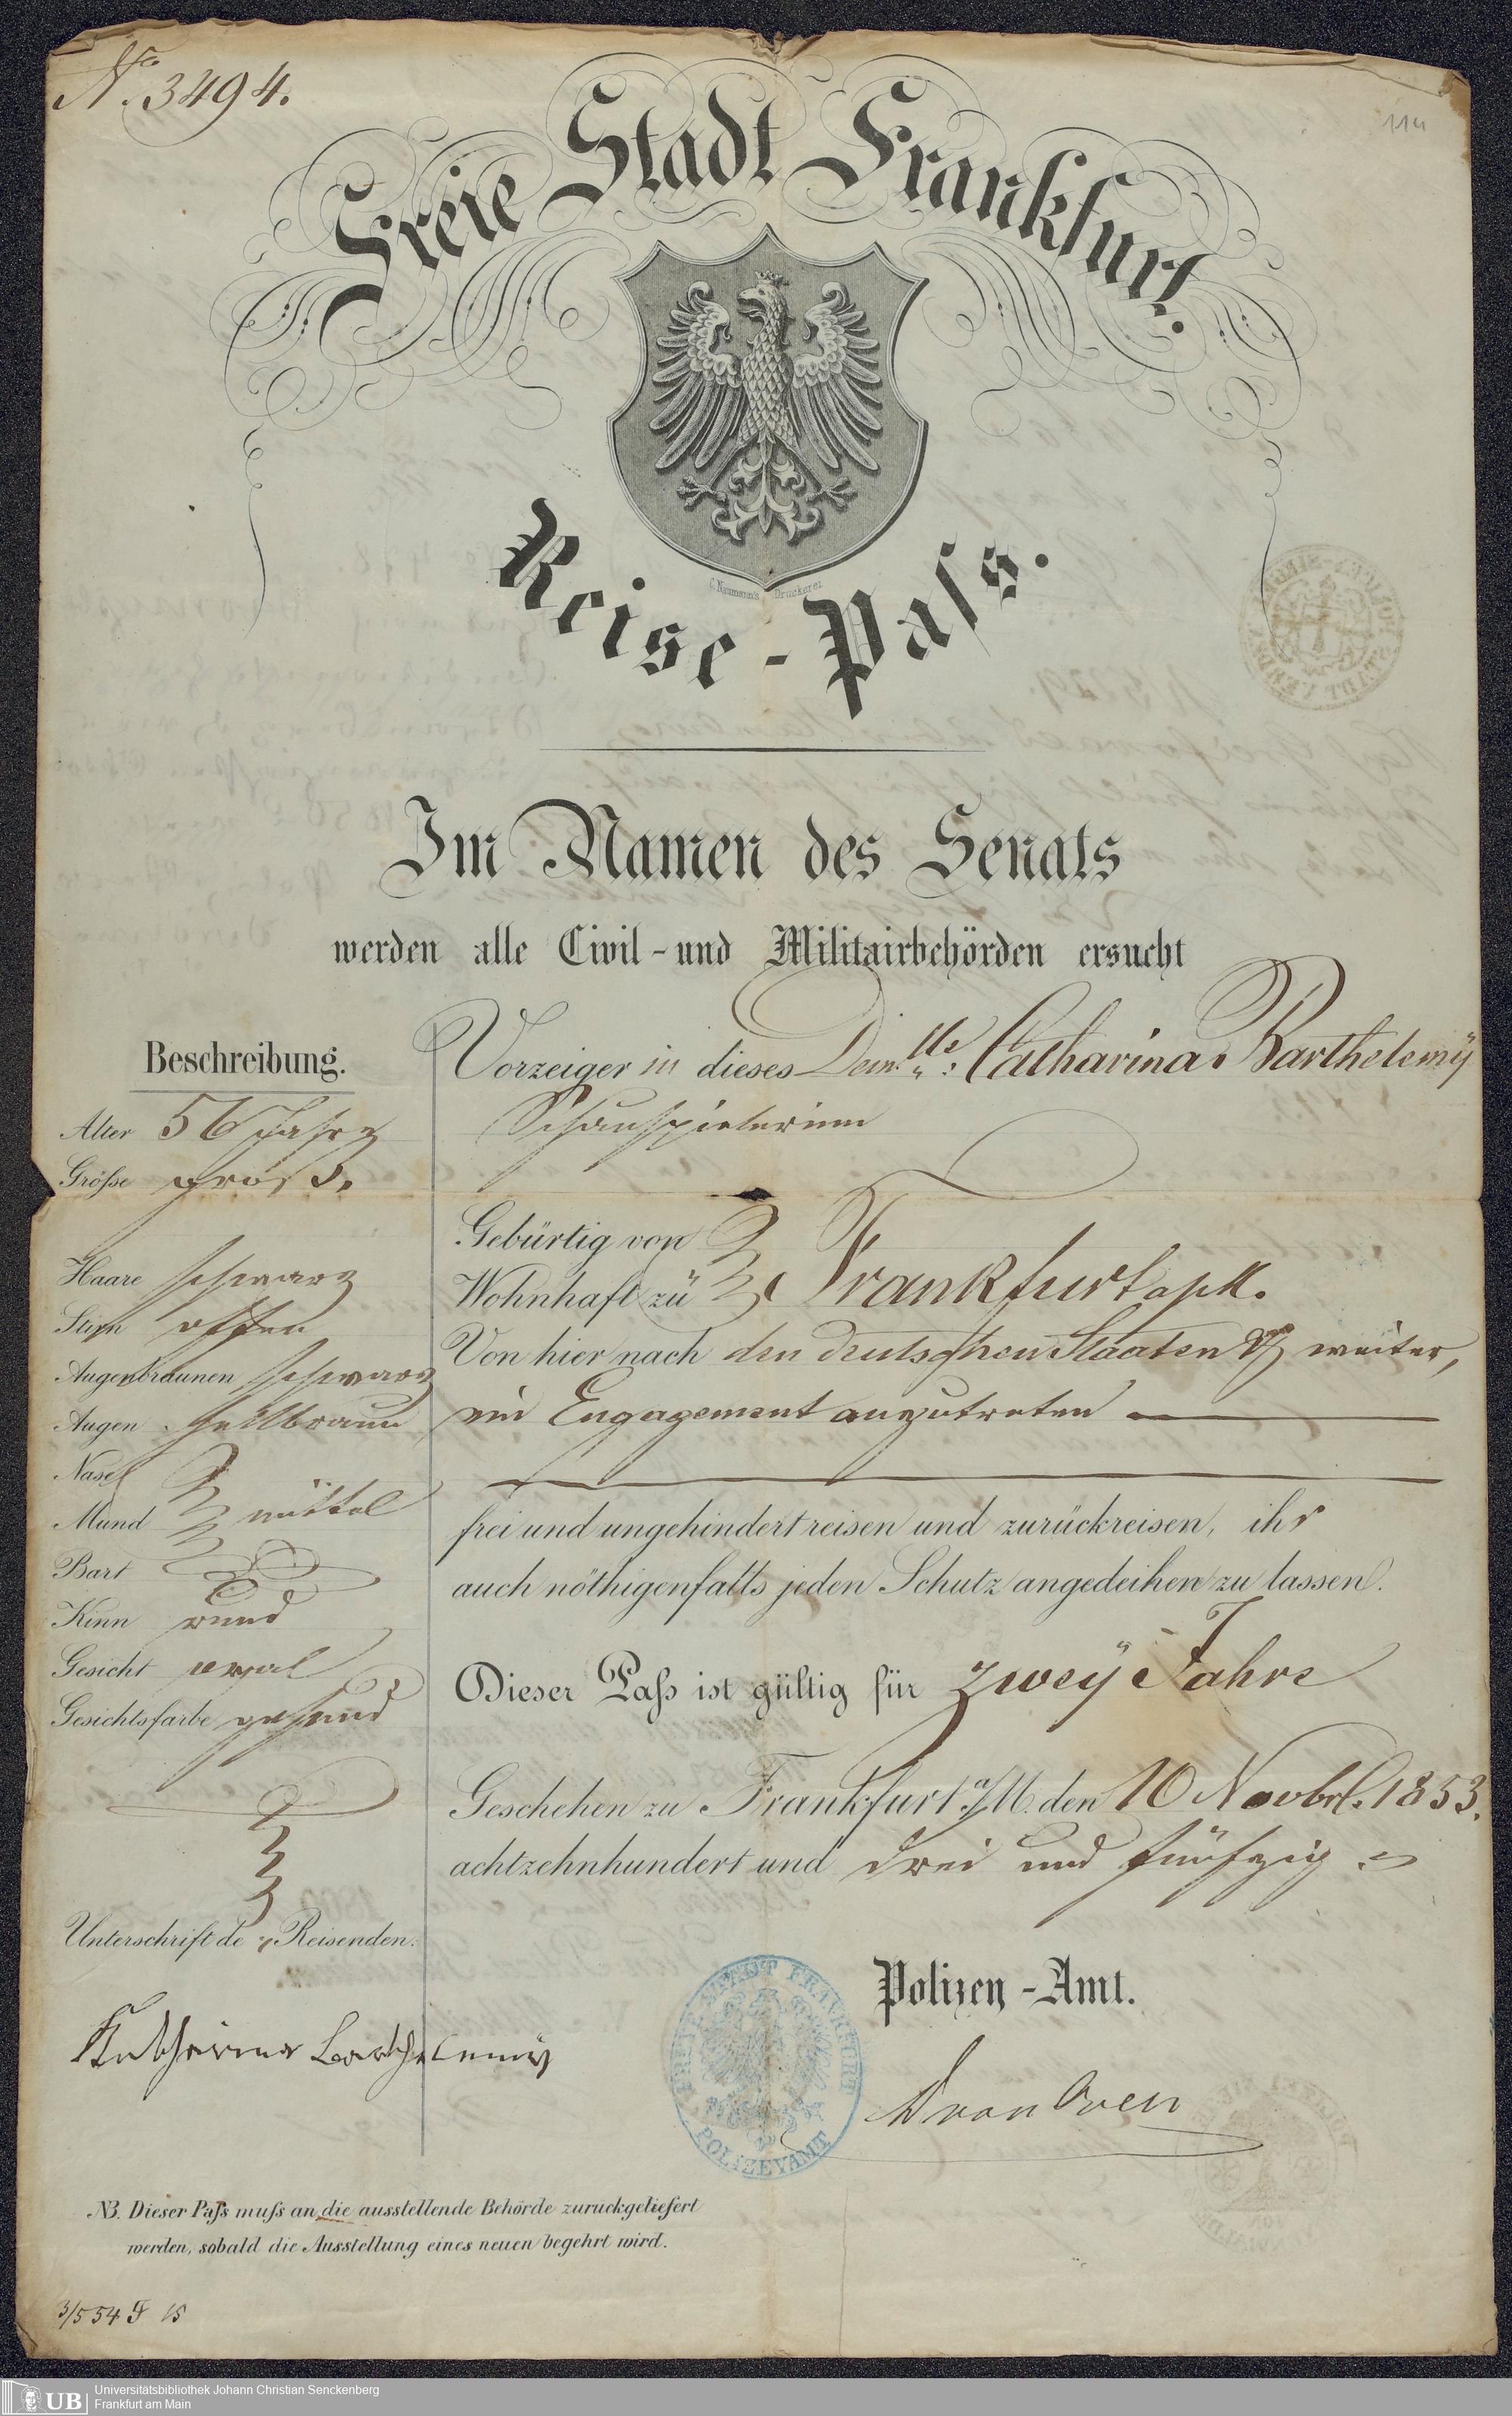 No. 3494.
114
Freie Stadt Frankfurt.
C. Naumann's Druckerei
Reise-Paſs.
Im Namen des Senats
werden alle Civil-und Militairbehörden ersucht
Beschreibung.
Alter 56 Jahre
Größe groß.
Haare schwarz
Stirn offen
Augenbraunen schwarz
Augen hellbraun
Nase
Mund mittel
Bart
Kinn rund
Gesicht oval
Gesichtsfarbe gesund
Unterschrift de r Reisenden.
Katharina Barthelemy
Vorzeiger in dieses Demlle: Catharina Barthelemÿ
Schauspielerinn
Gebürtig von
Wohnhaft zu Frankfurt a/M.
Von hier nach den deutschen Staaten & weiter,
ein Engagement anzutreten
frei und ungehindert reisen und zurückreisen, ihr
auch nöthigenfalls jeden Schutz angedeihen zu lassen.
Dieser Paſs ist gültig für zweÿ Jahre
Geschehen zu Frankfurt a/M. den 10 Novbr. 1853.
achtzehnhundert und drei und fünfzig
Polizey-Amt.
FREIE STADT FRANKFURT
POLIZEYAMT
NB. Dieser Paſs muſs an die ausstellende Behörde zurückgeliefert
werden, sobald die Ausstellung eines neuen begehrt wird.
3/5 54 F 15
UB
Universitätsbibliothek Johann Christian Senckenberg
Frankfurt am Main